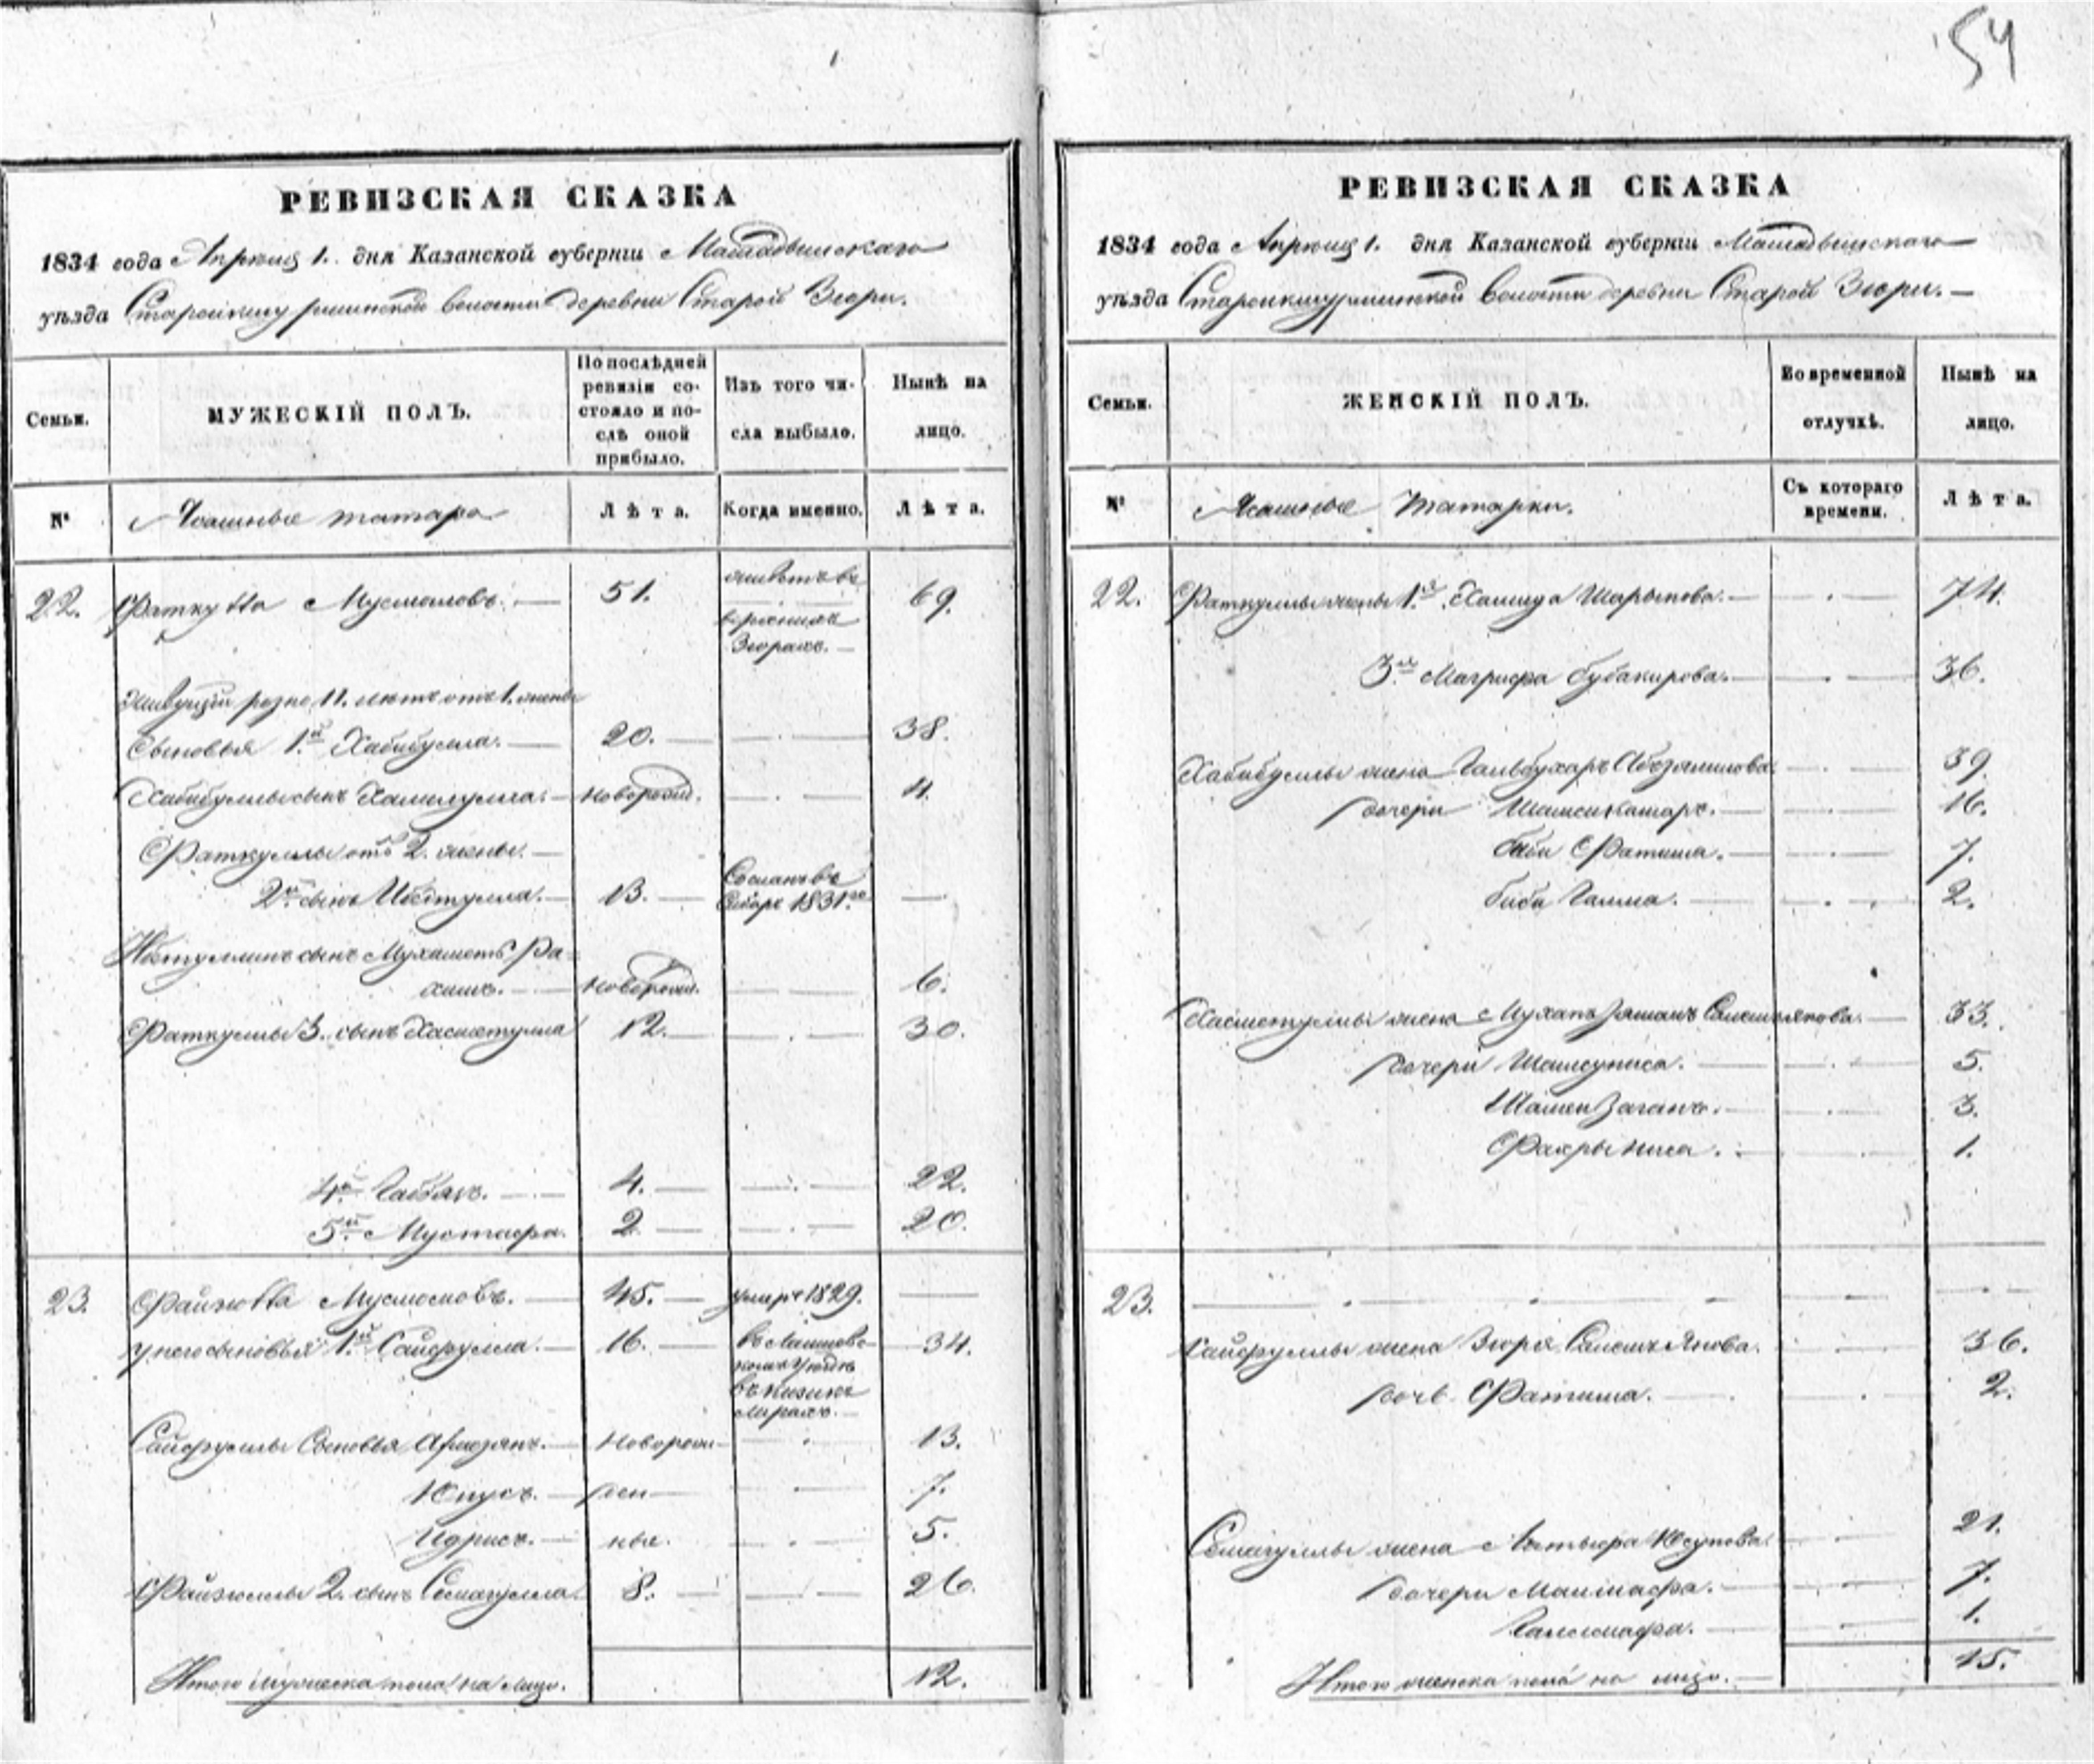 54
РЕВИЗСКАЯ СКАЗКА
1834 года Апреля 1. дня Казанской губерніи Мамадышскаго
уѣзда Старокишу волости деревни Старой Зюри.
Семьи.
МУЖЕСКІЙ ПОЛЪ.
По послѣдней ревизіи со-
стояло и по-
слѣ оной
прибыло.
Изъ того чи-
сла выбыло.
Нынѣ на
лицо.
№
Ясашные татара
Лѣта.
Когда именно.
Лѣта.
22. Фаткулла Мусмоловъ. — 51. живетъ въ верхнихъ Зюрахъ. — 69.
живущіи розно 11. летъ отъ 1. жены
Сыновья 1й Хабибулла. — 20. — 38.
Хабибуллы сынъ Хамидулла. — новорожд. — 4.
Фаткуллы отъ 2. жены. —
2й сынъ Ибетулла. — 13. — Сосланъ въ Сибирь 1831го —
Ибетуллинъ сынъ Мухаметъ Ра-
химъ. — новорожд. — 6.
Фаткуллы 3. сынъ Хасметулла 12. — 30.
4й — 4. — 22.
5й Мустафа. 2 — 20.
23. Файзулла Мусмоловъ. — 45. — умеръ 1829. —
у него сыновья 1й Сайфулла. — 16. — въ Лаишевс-
комъ уѣздѣ
въ
34.
Сайфуллы Сыновья — новорож — 13.
Юнусъ. — ден — 7.
Идрисъ. — ные. 5.
Файзуллы 2. сынъ Семигулла. 8. — 26.
Итого мужеска пола на лицо. 12.
РЕВИЗСКАЯ СКАЗКА
1834 года Апреля 1. дня Казанской губерніи Мамадышскаго
уѣзда волости деревни Старой Зюри. —
Семьи.
ЖЕНСКІЙ ПОЛЪ.
Во временной
отлучкѣ.
Нынѣ на
лицо.
№
Ясашные татарки.
Съ котораго
времени.
Лѣта.
22. Фаткуллы жены 1я Хамида Шарыпова. — 74.
3я Магруфа Бубакирова. — 36.
Хабибуллы жена Гильбухаръ 39.
дочери Шамсикамаръ. — 16.
биби Фатима. — 7.
биби Галима. — 2.
Хасметуллы жена 33.
дочери Шамсуниса. — 5.
3.
Фахры ниса. 1.
23. —
Сайфуллы жена Зюря 36.
дочь Фатима. — 2.
Семигуллы жена Латыфа Юсупова. 21.
дочери 7.
1.
Итого женска пола на лицо. — 15.